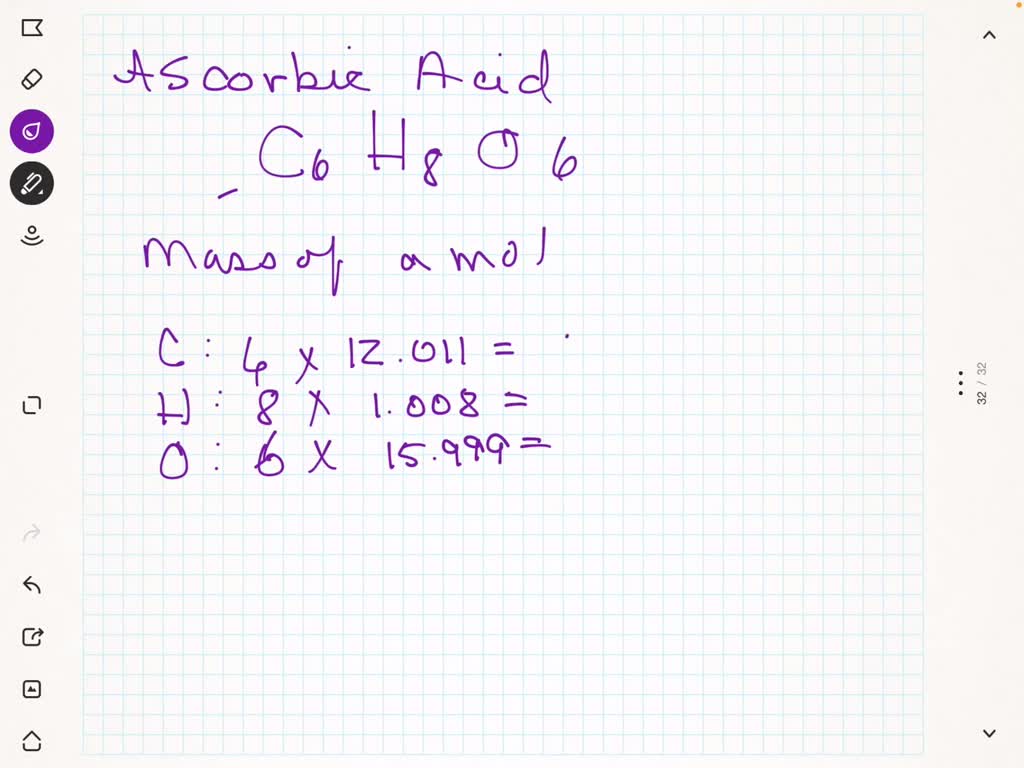 Ascorbic Acid
C6 H8 O6
Mass of a mol
C: 6 x 12.011 =
H: 8 x 1.008 =
O: 6 x 15.999 =
32 / 32